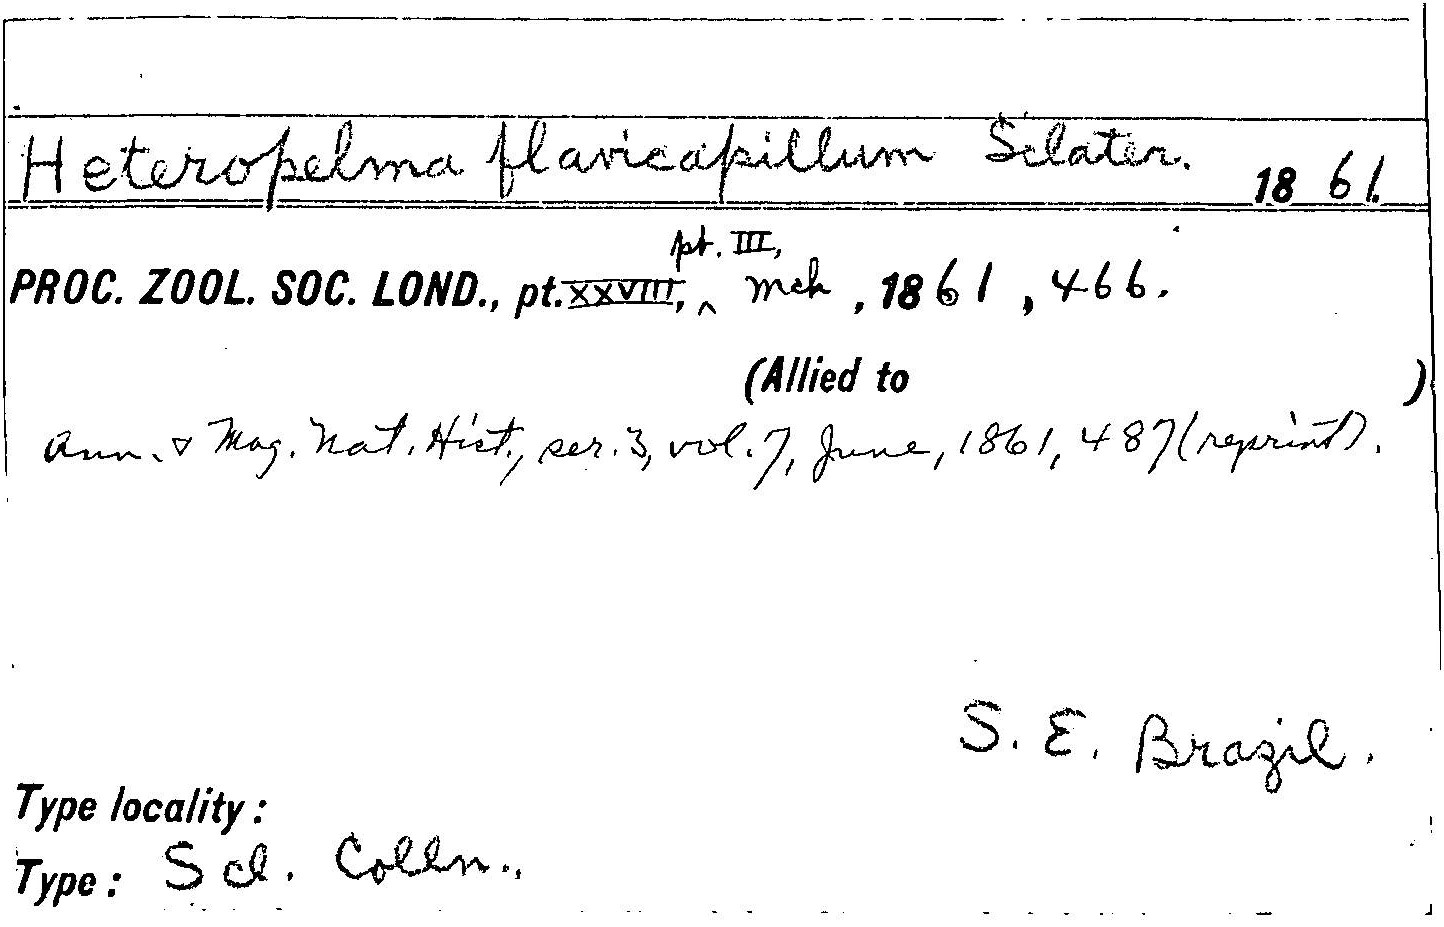 Heteropelma flavicapillum Sclater. 1861.
pt. III,
PROC. ZOOL. SOC. LOND., pt. XXVIII, ^ Mch, 1861, 466.
(Allied to )
Ann. & Mag. Nat. Hist., ser. 3, vol. 7, June, 1861, 487 (reprint).
S. E. Brazil.
Type locality:
Type: Scl. Colln.,